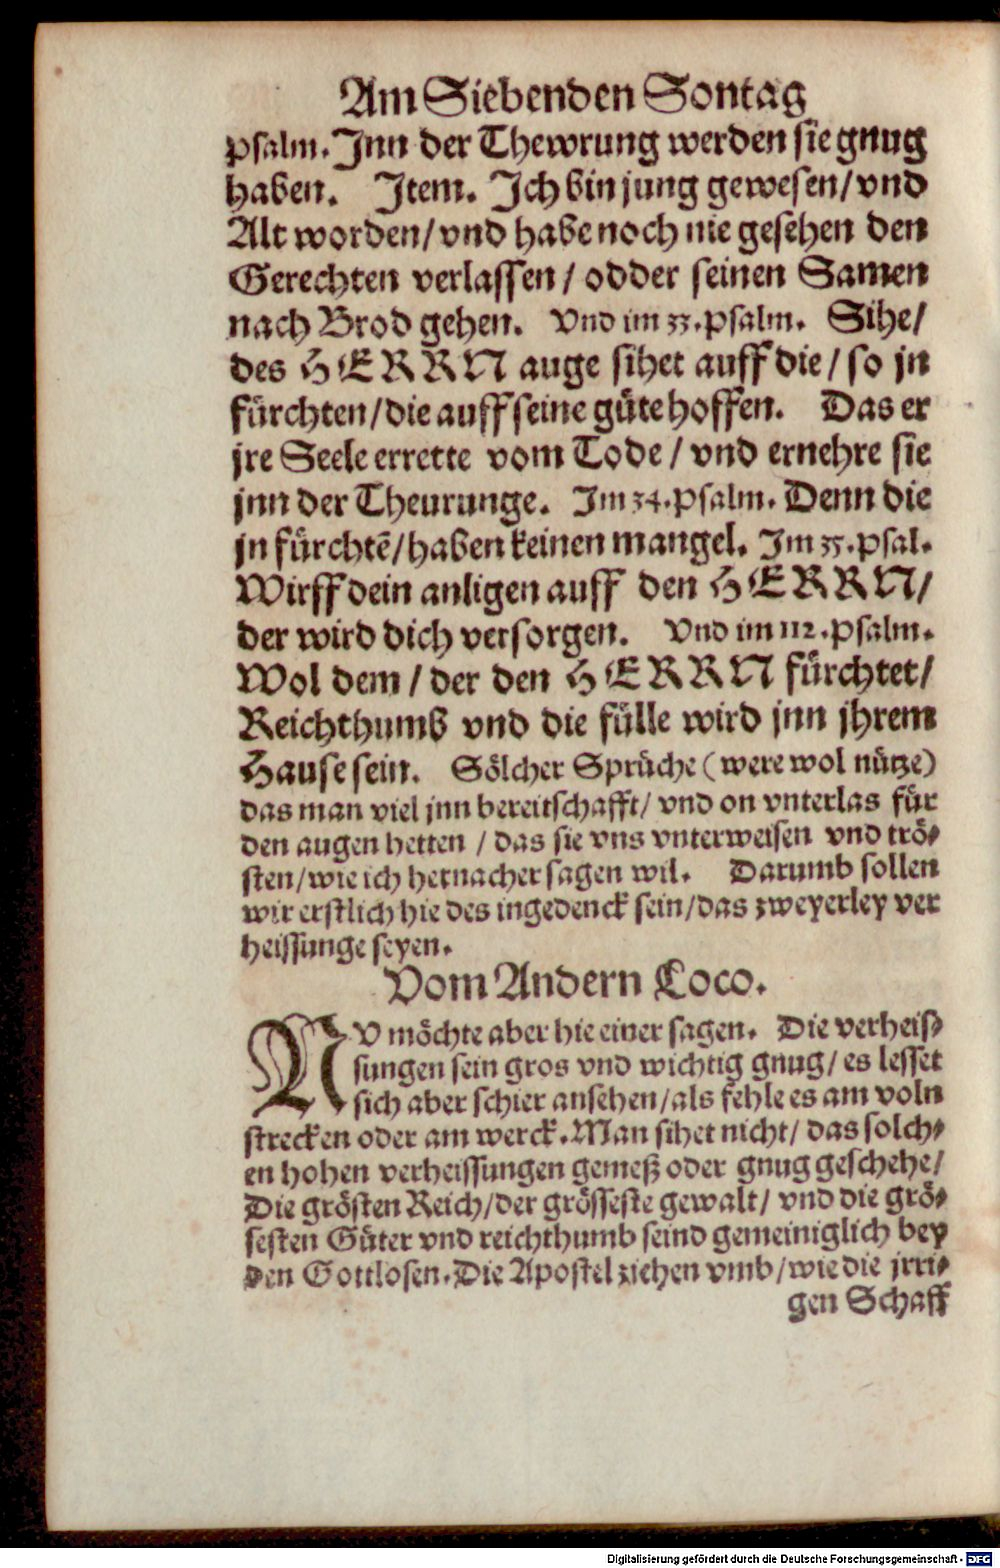 Am Siebenden Sontag
Psalm. Inn der Thewrung werden sie gnug
haben. Item. Ich bin jung gewesen/ vnd
Alt worden/ vnd habe noch nie gesehen den
Gerechten verlassen/ odder seinen Samen
nach Brod gehen. Vnd im 33. Psalm. Sihe/
des HERRN auge sihet auff die/ so jn
fürchten/ die auff seine güte hoffen. Das er
jre Seele errette vom Tode/ vnd ernehre sie
jnn der Theurunge. Im 34. Psalm. Denn die
jn fürchtẽ/ haben keinen mangel. Im 55. Psal.
Wirff dein anligen auff den HERRN/
der wird dich versorgen. Vnd im 112. Psalm.
Wol dem/ der den HERRN fürchtet/
Reichthumb vnd die fülle wird jnn jhrem
Hause sein. Sölcher Sprüche (were wol nütze)
das man viel jnn bereitschafft/ vnd on vnterlas für
den augen hetten/ das sie vns vnterweisen vnd trö⸗
sten/ wie ich hernacher sagen wil. Darumb sollen
wir erstlich hie des ingedenck sein/ das zweyerley ver
heissunge seyen.
Vom Andern Loco.
NV möchte aber hie einer sagen. Die verheis⸗
sungen sein gros vnd wichtig gnug/ es lesset
sich aber schier ansehen/ als fehle es am voln
strecken oder am werck. Man sihet nicht/ das solch⸗
en hohen verheissungen gemeß oder gnug geschehe/
Die grösten Reich/ der grösseste gewalt/ vnd die grö⸗
sesten Güter vnd reichthumb seind gemeiniglich bey
den Gottlosen. Die Apostel ziehen vmb/ wie die jrri⸗
gen Schaff
Digitalisierung gefördert durch die Deutsche Forschungsgemeinschaft - DFG